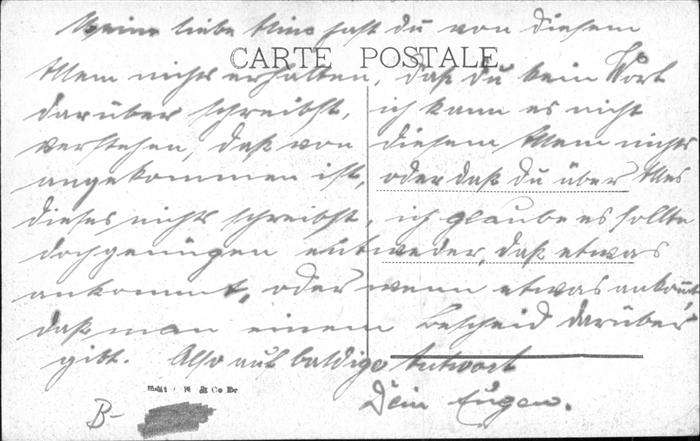 Meine liebe Mine hast du von diesem
CARTE POSTALE
Allem nichts erhalten, daß du kein Wort
darüber schreibst, ich kann es nicht
verstehen, daß von diesem Allem nichts
angekommen ist, oder daß du über Alles
dieses nichts schreibst, ich glaube es sollte
doch genügen entweder, daß etwas
ankommt, oder wenn etwas ankommt,
daß man einem Bescheid darüber
gibt. Also auf baldige Antwort
Dein Eugen.
B-